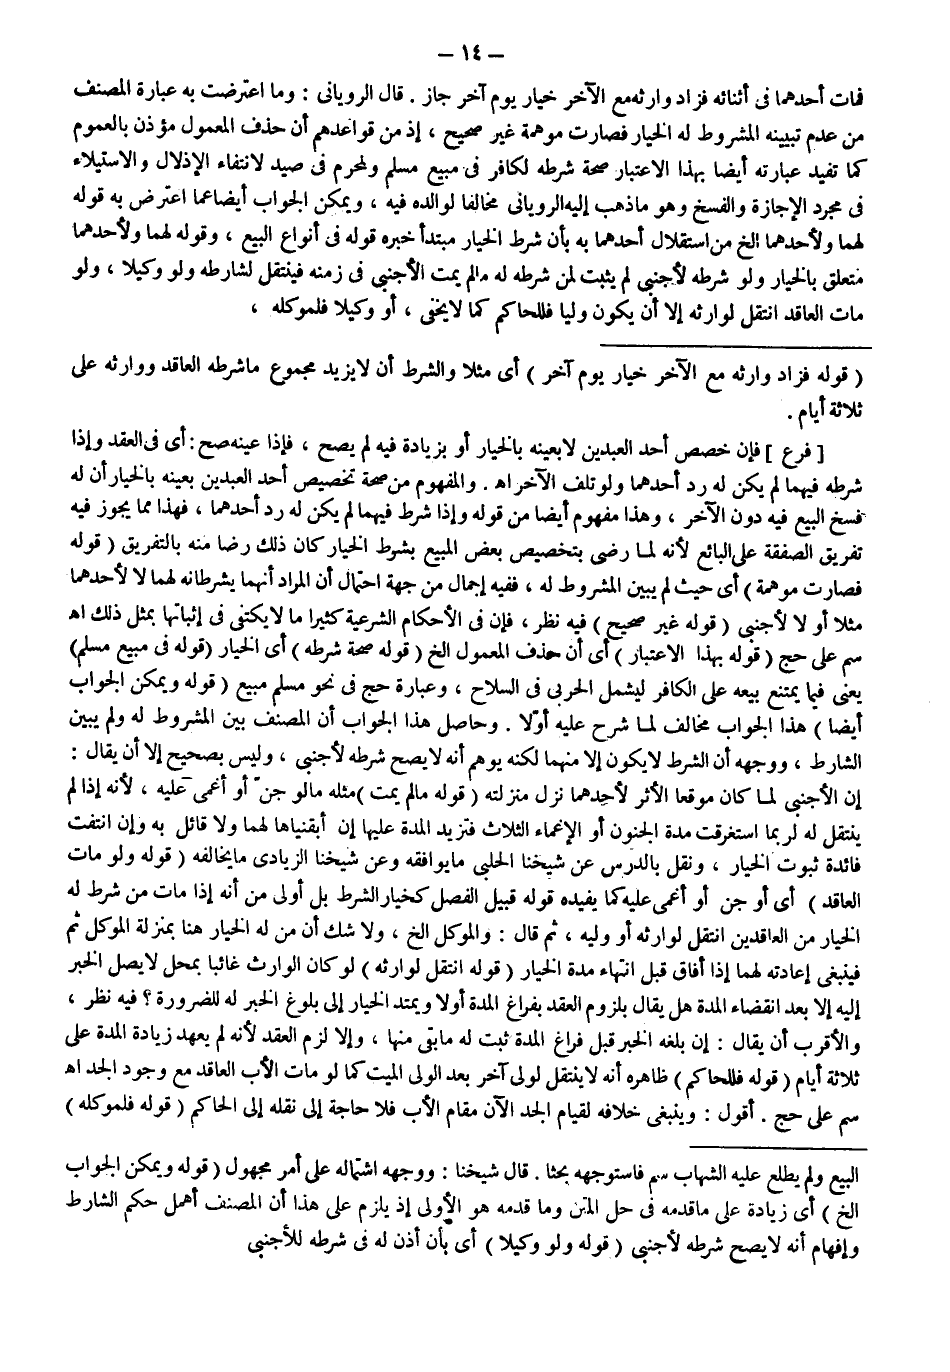 – ١٤ –
فمات أحدهما فى أثنائه فزاد وارثه مع الآخر خيار يوم آخر جاز . قال الرويانى : وما اعترضت به عبارة المصنف
من عدم تبيينه المشروط له الخيار فصارت موهمة غير صحيح ، إذ من قواعدهم أن حذف المعمول مؤذن بالعموم
كما تفيد عبارته أيضا بهذا الاعتبار صحة شرطه لكافر فى مبيع مسلم ولمحرم فى صيد لانتفاء الإذلال والاستيلاء
فى مجرد الإجازة والفسخ وهو ماذهب إليه الرويانى مخالفا لوالده فيه ، ويمكن الجواب أيضا عما اعترض به قوله
لهما ولأحدهما الخ من استقلال أحدهما به بأن شرط الخيار مبتدأ خبره قوله فى أنواع البيع ، وقوله لهما ولأحدهما
متعلق بالخيار ولو شرطه لأجنبى لم يثبت لمن شرطه له مالم يمت الأجنبى فى زمنه فينتقل لشارطه ولو وكيلا ، ولو
مات العاقد انتقل لوارثه إلا أن يكون وليا فللحاكم كما لايخفى ، أو وكيلا فلموكله ،
( قوله فزاد وارثه مع الآخر خيار يوم آخر ) أى مثلا والشرط أن لايزيد مجموع ماشرطه العاقد ووارثه على
ثلاثة أيام .
[ فرع ] فإن خصص أحد العبدين لابعينه بالخيار أو بزيادة فيه لم يصح ، فإذا عينه صح : أى فى العقد وإذا
شرطه فيهما لم يكن له رد أحدهما ولو تلف الآخر اه . والمفهوم من صحة تخصيص أحد العبدين بعينه بالخيار أن له
فسخ البيع فيه دون الآخر ، وهذا مفهوم أيضا من قوله وإذا شرط فيهما لم يكن له رد أحدهما ، فهذا مما يجوز فيه
تفريق الصفقة على البائع لأنه لما رضى بتخصيص بعض المبيع بشرط الخيار كان ذلك رضا منه بالتفريق ( قوله
فصارت موهمة ) أى حيث لم يبين المشروط له ، ففيه إجمال من جهة احتمال أن المراد أنهما يشرطانه لهما لا لأحدهما
مثلا أو لا لأجنبى ( قوله غير صحيح ) فيه نظر ، فإن فى الأحكام الشرعية كثيرا ما لايكتفى فى إثباتها بمثل ذلك اه
سم على حج ( قوله بهذا الاعتبار ) أى أن حذف المعمول الخ ( قوله صحة شرطه ) أى الخيار ( قوله فى مبيع مسلم )
يعنى فيما يمتنع بيعه على الكافر ليشمل الحربى فى السلاح ، وعبارة حج فى نحو مسلم مبيع ( قوله ويمكن الجواب
أيضا ) هذا الجواب مخالف لما شرح عليه أوّلا . وحاصل هذا الجواب أن المصنف بين المشروط له ولم يبين
الشارط ، ووجهه أن الشرط لايكون إلا منهما لكنه يوهم أنه لايصح شرطه لأجنبى ، وليس بصحيح إلا أن يقال :
إن الأجنبى لما كان موقعا الأثر لأحدهما نزل منزلته ( قوله مالم يمت ) مثله مالو جنّ أو أغمى عليه ، لأنه إذا لم
ينتقل له لربما استغرقت مدة الجنون أو الإغماء الثلاث فتزيد المدة عليها إن أبقنياها لهما ولا قائل به وإن انتفت
فائدة ثبوت الخيار ، ونقل بالدرس عن شيخنا الحلبى مايوافقه وعن شيخنا الزيادى مايخالفه ( قوله ولو مات
العاقد ) أى أو جن أو أغمى عليه كما يفيده قوله قبيل الفصل كخيار الشرط بل أولى من أنه إذا مات من شرط له
الخيار من العاقدين انتقل لوارثه أو وليه ، ثم قال : والموكل الخ ، ولا شك أن من له الخيار هنا بمنزلة الموكل ثم
فينبغى إعادته لهما إذا أفاق قبل انتهاء مدة الخيار ( قوله انتقل لوارثه ) لو كان الوارث غائبا بمحل لايصل الخبر
إليه إلا بعد انقضاء المدة هل يقال بلزوم العقد بفراغ المدة أولا ويمتد الخيار إلى بلوغ الخبر له للضرورة ؟ فيه نظر ،
والأقرب أن يقال : إن بلغه الخبر قبل فراغ المدة ثبت له مابقى منها ، وإلا لزم العقد لأنه لم يعهد زيادة المدة على
ثلاثة أيام ( قوله فللحاكم ) ظاهره أنه لاينتقل لولى آخر بعد الولى الميت كما لو مات الأب العاقد مع وجود الجد اه
سم على حج . أقول : وينبغى خلافه لقيام الجد الآن مقام الأب فلا حاجة إلى نقله إلى الحاكم ( قوله فلموكله )
البيع ولم يطلع عليه الشهاب سم فاستوجهه بحثا . قال شيخنا : ووجهه اشتماله على أمر مجهول ( قوله ويمكن الجواب
الخ ) أى زيادة على ماقدمه فى حل المتن وما قدمه هو الأولى إذ يلزم على هذا أن المصنف أهمل حكم الشارط
وإفهام أنه لايصح شرطه لأجنبى ( قوله ولو وكيلا ) أى بأن أذن له فى شرطه للأجنبى